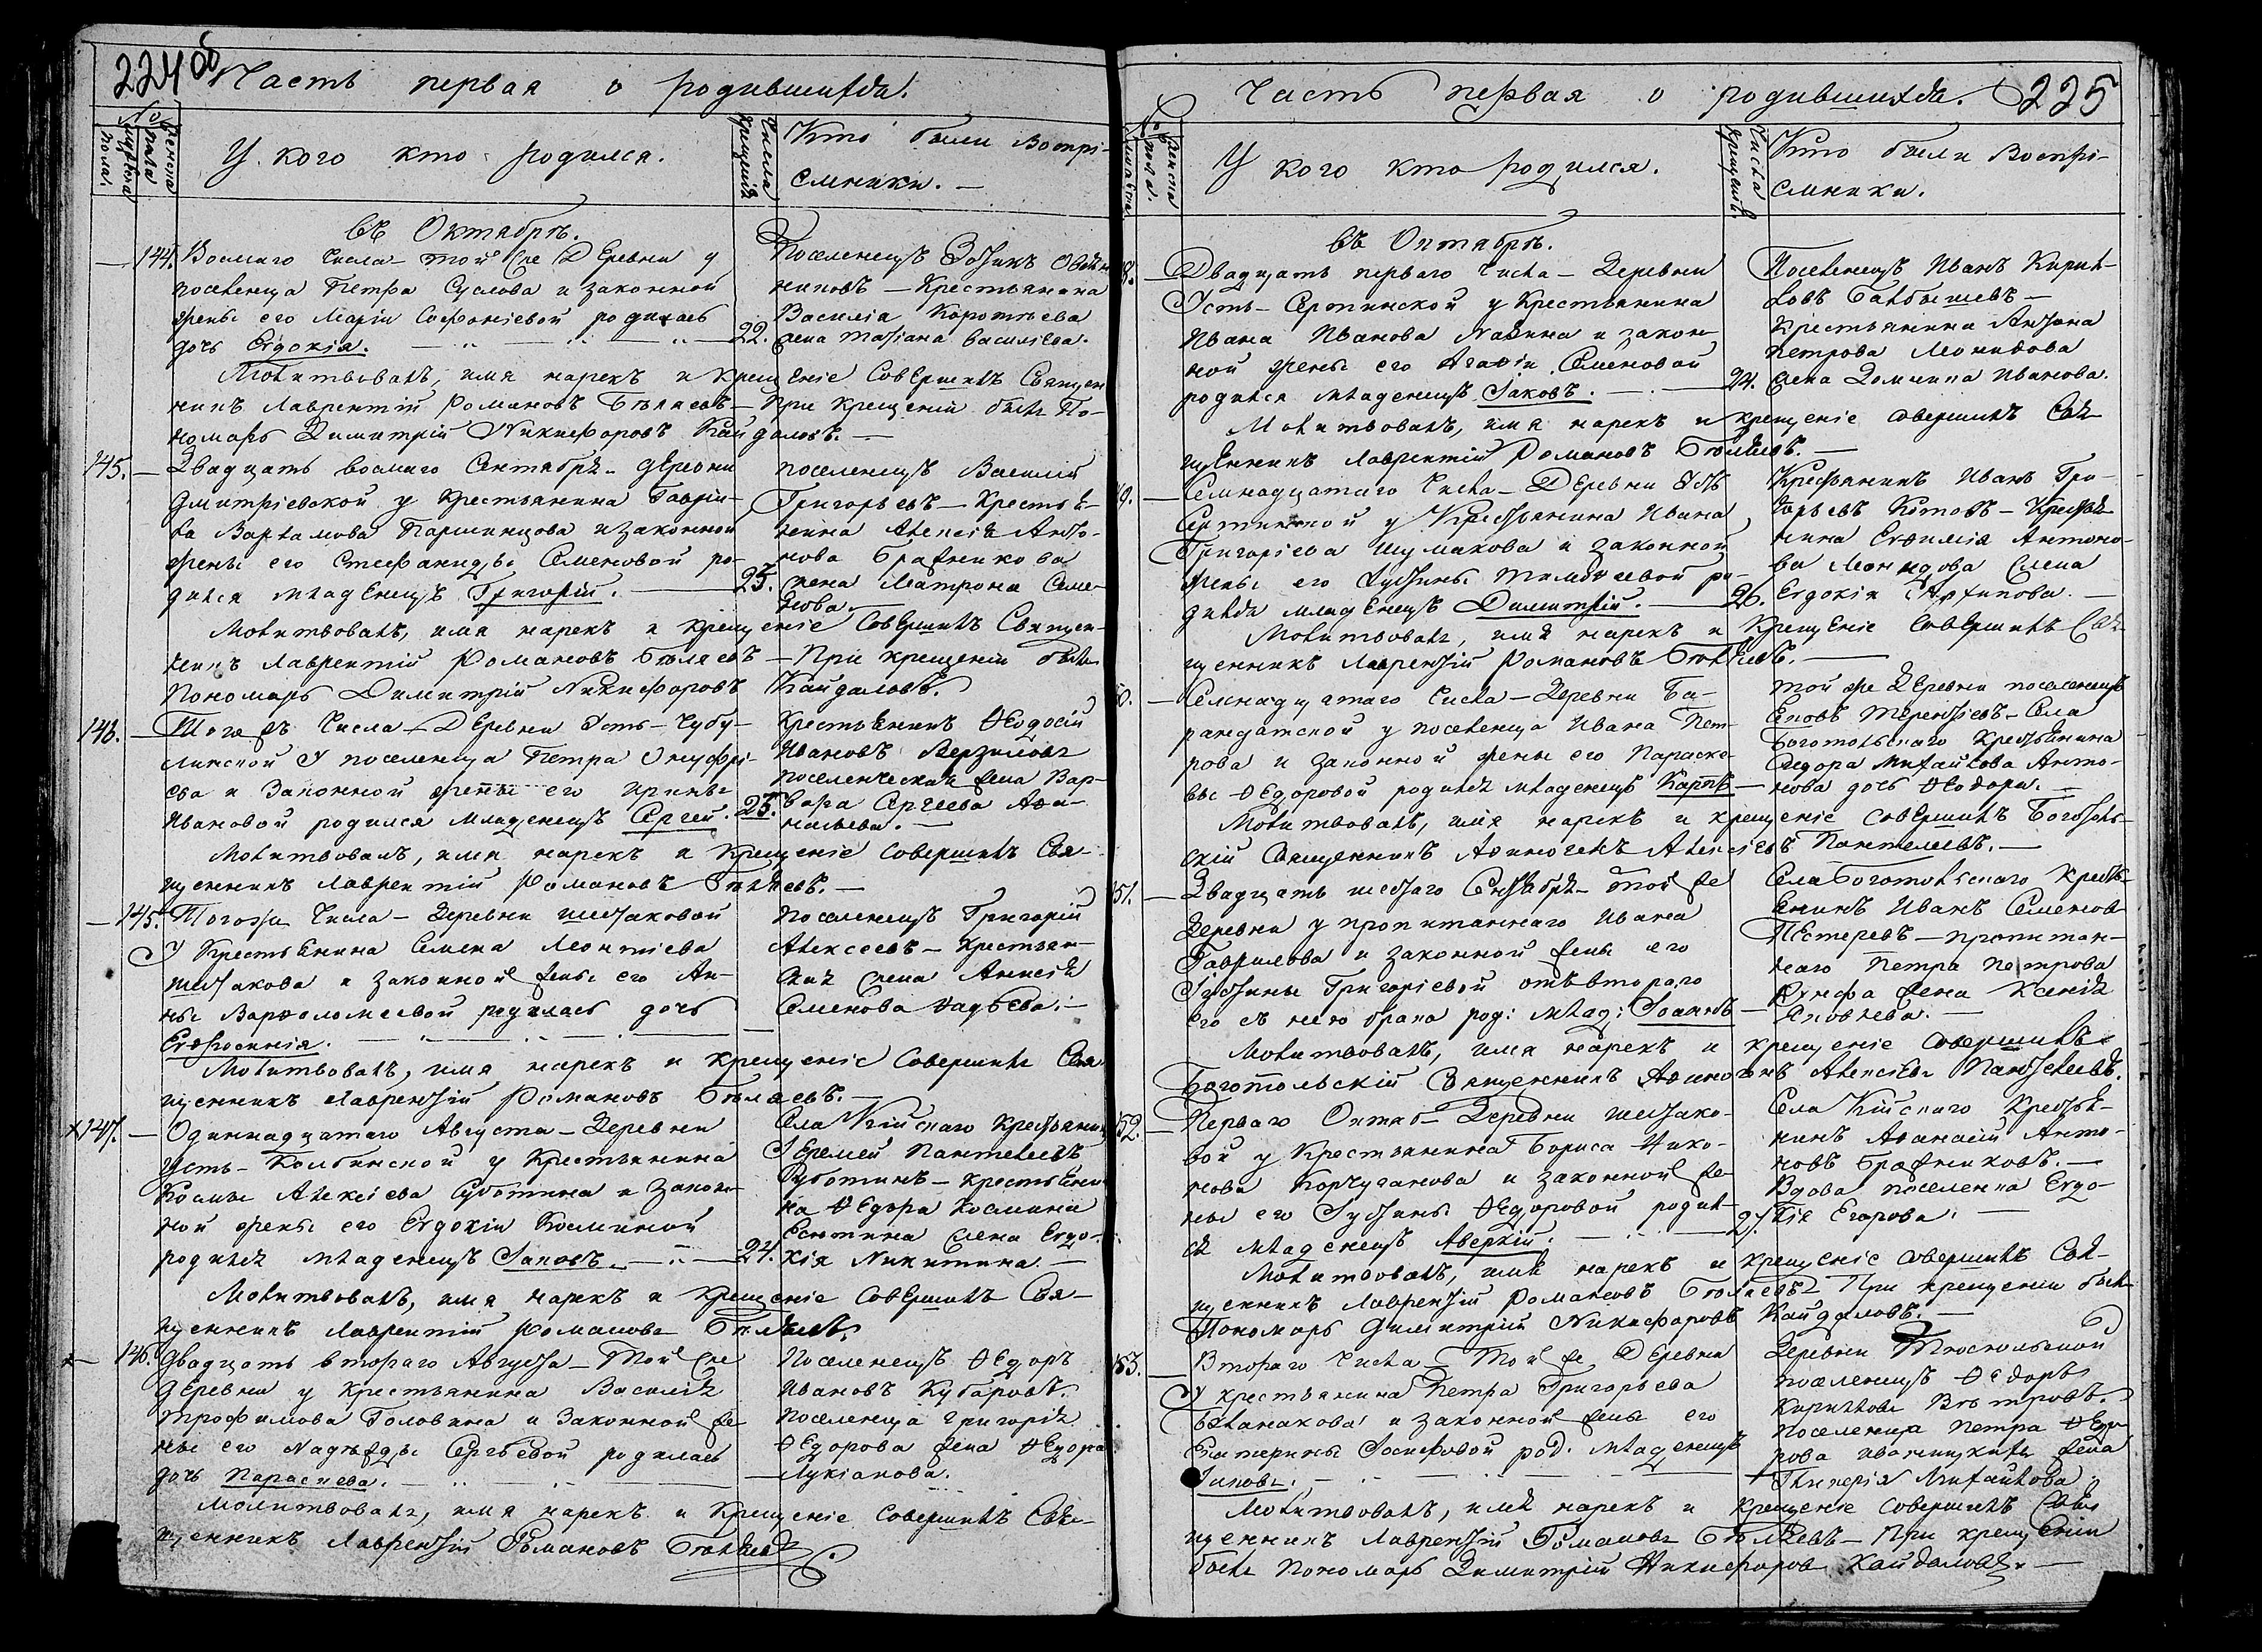 224об
Часть первая о родившихся.
№
Женска пола
Мужеска пола.
У кого кто родился.
Числа крещенія
Кто были Воспрі-
емники. —
въ Октябрѣ.
144. Восмаго Числа — той же Деревни у
поселенца Петра Суслова и законной
жены его Маріи Софоніевой родилась
дочь Евдокія. 22.
Поселенецъ
никовъ — Крестьянина
Василія Коротьева
жена Татіана Васильева.
Молитвовалъ, имя нарекъ и крещеніе Совершилъ Священ
никъ Лаврентій Романовъ Бѣляевъ — При Крещеніи былъ По-
номарь Димитрій Никифоровъ Кайдаловъ. —
145. — Двадцать восмаго Сентября — деревни
Дмитріевской у Крестьянина Гаврі-
ла Варламова Паршинцова и законной
жены его Стефаниды Семеновой ро-
дился младенецъ Григорій. — 23.
поселенецъ Василій
Григорьевъ — Крестья-
нина Алексія Анто-
нова Бражникова
жена Матрона Семе-
нова. —
Молитвовалъ, имя нарекъ и крещеніе Совершилъ Священ-
никъ Лаврентій Романовъ Бѣляевъ — При крещеніи былъ
Пономарь Димитрій Никифоровъ Кайдаловъ.
146. — Того жъ Числа — Деревни Усть-Чубу-
линской У поселенца Петра Онуфрі-
ева и Законной жены его Ирины
Ивановой родился младенецъ Сергей. 23.
Крестьянинъ Ѳеодосій
Ивановъ Верзиловъ
поселенческая жена Вар-
вара Сергеева Аѳа-
насьева. —
Молитвовалъ, имя нарекъ и Крещеніе Совершилъ Свя-
щенникъ Лаврентій Романовъ Бѣляевъ. —
— 145. Тогожъ Числа — Деревни Шестаковой
У Крестьянина Семена Леонтіева
Шестакова и законной жены его Ан-
ны Варѳоломеевой родилась дочь
Евфросинія.
Поселенецъ Григорій
Алексеевъ — крестьян-
ская жена Анисія
Семенова Фадѣева. —
Молитвовалъ, имя нарекъ и крещеніе Совершилъ Свя
щенникъ Лаврентій Романовъ Бѣляевъ. —
х147. — Одиннадцатаго Августа — Деревни
Усть-Колбинской у Крестьянина
Космы Алексіева Суботина и закон-
ной жены его Евдокіи Косминой
родился младенецъ Іаковъ. — 24.
Села Кійскаго Крестьянинъ
Іеремей Пантелеевъ
Суботинъ — крестьяни
на Ѳедора Космина
жена Евдо-
кія Никитина —
Молитвовалъ, имя нарекъ и Крещеніе Совершилъ Свя-
щенникъ Лаврентій Романовъ Бѣляевъ.
х — 146. Двадцать втораго Августа — Той же
деревни у Крестьянина Василія
Трофимова Головина и Законной же
ны его Надѣжды Сергѣевой родилась
дочь Параскева. —
Поселенецъ Ѳедоръ
Ивановъ Кубаровъ.
поселенца Григорія
Ѳедорова жена Ѳедора
Лукіанова.
Молитвовалъ, имя нарекъ и Крещеніе Совершилъ Свя-
щенникъ Лаврентій Романовъ Бѣляевъ
Часть первая о родившихся. 225
№
Женска пола.
У кого кто родился.
Числа крещенія
Кто были Воспрі-
емники.
въ Октябрѣ.
8. — Двадцать перваго Числа — Деревни
Усть-Сертинской у Крестьянина
Ивана Иванова и закон-
ной жены его Агаѳіи Семеновой
родился младенецъ Іаковъ. — 24.
Поселенецъ Иванъ Кирил-
ловъ —
крестьянина Антона
Петрова Леонидова
жена Домнина Иванова.
Молитвовалъ, имя нарекъ и крещеніе совершилъ Свя
щенникъ Лаврентій Романовъ Бѣляевъ. —
49. — Семнадцатаго Числа — Деревни Усть
Сертинской у Крестьянина Ивана
Григоріева Шумакова и законной
жены его Іустины Тимоѳеевой ро-
дился младенецъ Димитрій. — 26.
Крестьянинъ Иванъ Гри-
горьевъ Котовъ — Крестья
нина Евѳимія Антоно-
ва Леонидова жена
Евдокія Архипова. —
Молитвовалъ, имя нарекъ и Крещеніе Совершилъ Свя-
щенникъ Лаврентій Романовъ Бѣляевъ. —
50. — Семнадцатаго Числа — Деревни Ба-
рандатской у поселенца Ивана Пет-
рова и законной жены его Параске-
вы Ѳедоровой родился младенецъ Карпъ —
той же Деревни поселенецъ
Терентіевъ — Села
Боготольскаго Крестьянина
Ѳедора Михайлова Анто-
нова дочь Ѳеодора. —
Молитвовалъ, имя нарекъ и крещеніе совершилъ Боготоль-
скій Священникъ Аѳиногенъ Алексіевъ Пантелеевъ. —
151. — Двадцать шестаго Сентября — той же
Деревни у пропитаннаго Ивана
Гаврилова и законной жены его
Іустины Григоріевой отъ втораго
его съ нею брака род: млад: Іоаннъ —
Села Боготольскаго Кресть-
янинъ Иванъ Семеновъ
Пестеревъ — пропитан-
наго Петра Петрова
жена Ксенія
Яковлева. —
Молитвовалъ, имя нарекъ и крещеніе совершилъ
Боготольскій Священникъ Аѳиногенъ Алексіевъ Пантелеевъ.
152. — Перваго Октяб — Деревни Шестако-
вой у Крестьянина Бориса Нико-
нова Корчуганова и законной же-
ны его Іустины Ѳедоровой родил-
ся младенецъ Аверкій. — 27.
Села Кійскаго Крестья-
нинъ Аѳанасій Анто-
новъ Бражниковъ. —
Вдова поселенка Евдо-
кія Егорова. —
Молитвовалъ, имя нарекъ и крещеніе совершилъ Свя-
щенникъ Лаврентій Романовъ Бѣляевъ При крещеніи былъ
Пономарь Димитрій Никифоровъ Кайдаловъ. —
153. — Втораго Числа — Той же Деревни
У крестьянина Петра Григорьева
Баланакова и законной жены его
Екатерины Іосифовой род. младенецъ
Іаковъ. —
Деревни Тюскольской
поселенецъ Ѳедоръ
Кириловъ Вѣтровъ.
поселенца Петра Ѳедо-
рова жена
Гликерія Михайлова.
Молитвовалъ, имя нарекъ и крещеніе совершилъ Свя
щенникъ Лаврентій Романовъ Бѣляевъ — При крещеніи
былъ Пономарь Димитрій Никифоровъ Кайдаловъ. —